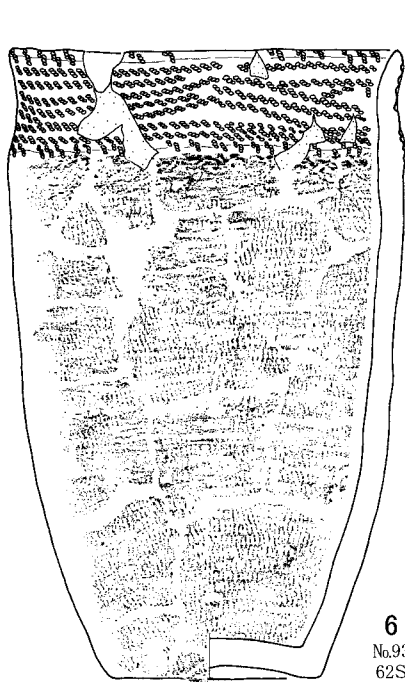 6
No.93
62S